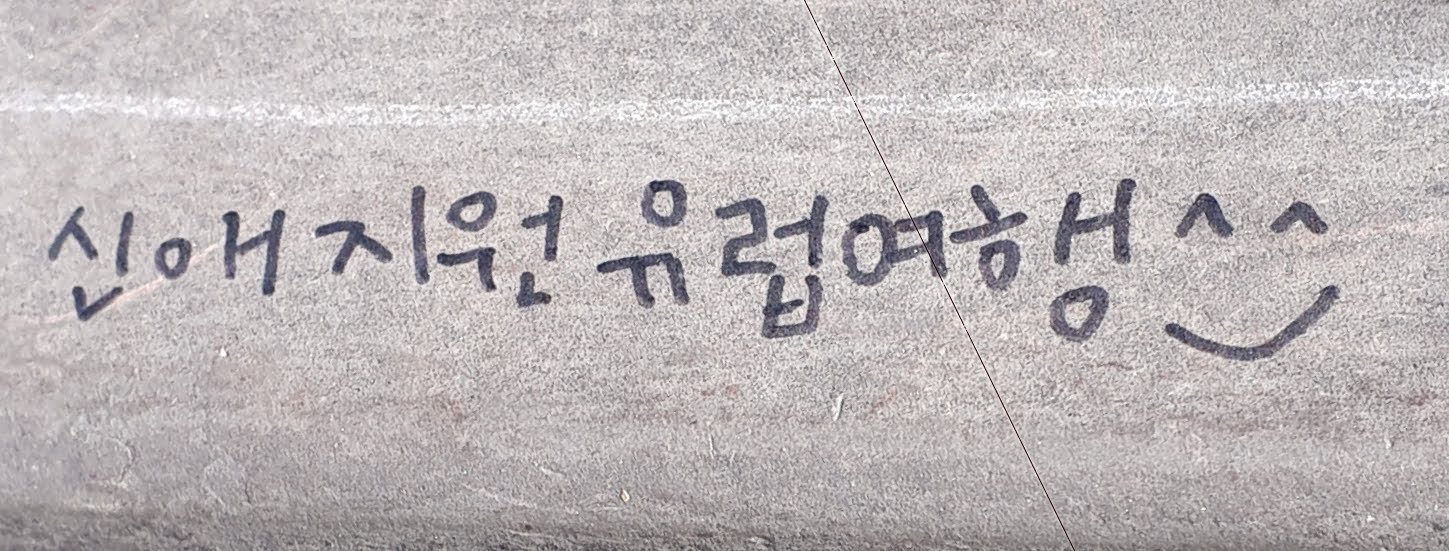 신애 지원 유럽여행 ^^